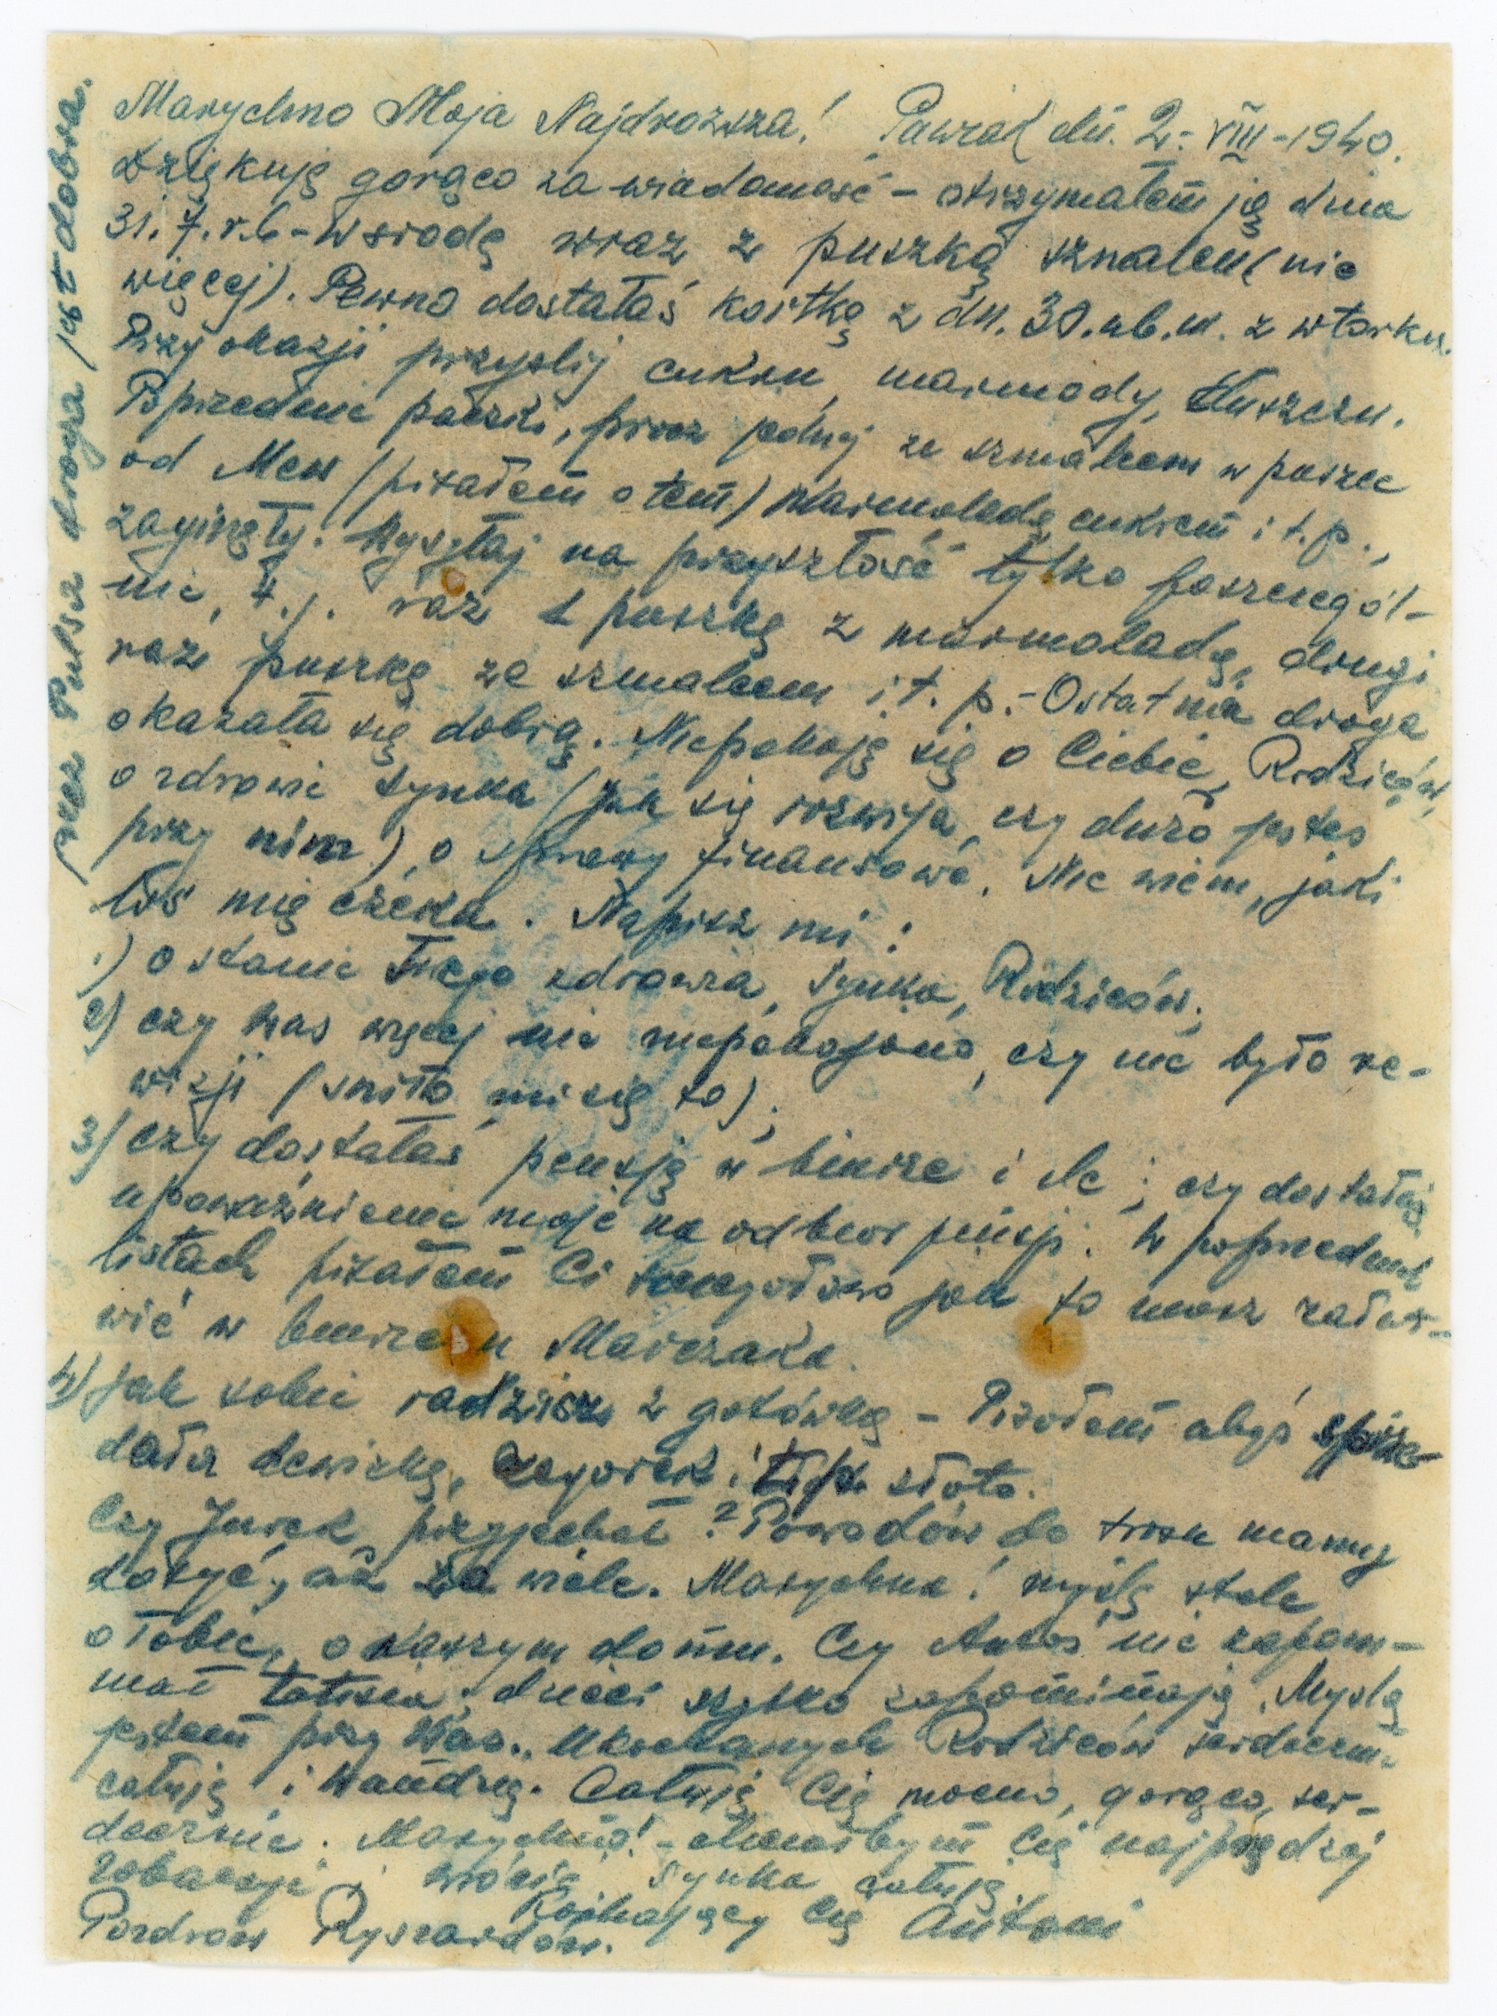 Marychno Moja Najdroższa! Pawiak dn. 2.-VIII-1940.
Dziękuję gorąco za wiadomość - otrzymałem ją dnia
31.7.r.b - w środę wraz z puszką szmalcu (nic
więcej). Pewno dostałaś kartkę z dn. 30.ub.m. z wtorku.
Przy okazji przyslij cukru, marmody, tłuszczu.
Poprzednie paczki, prócz jednej ze szmalcem w puszce
od Men (pisałem o tem) marmoladą cukrem i t.p.,
zaginęły. Wysyłaj na przyszłość tylko poszczegól-
nie, t.j. raz 1 puszkę z marmoladą, drugi
raz puszkę ze szmalcem i t. p. - Ostatnia droga
okazała się dobrą. Niepokoję się o Ciebie, Rodziców,
o zdrowie synka (jak się rozwija, czy dużo jesteś
przy nim) o sprawy finansowe. Nie wiem, jaki
los mię czeka. Napisz mi:
1) o stanie Twego zdrowia, Synka, Rodziców;
2) czy Was więcej nie niepokojono, czy nie było re-
wizji (śniło mi się to);
3) czy dostałaś pensję w biurze i ile; czy dostałaś
upoważnienie moje na odbiór pensji. W poprzednich
listach pisałem Ci szczegółowo jak to masz załat-
wić w biurze u Marczaka.
4) jak sobie radzisz z gotówką - Pisałem abyś sprze-
dała dewizkę, zegarek i t.p. złoto.
Czy Jurek przyjechał? Powodów do trosk mamy
dosyć, aż za wiele. Marychna! myślę stale
o Tobie, o naszym domu. Czy Antoś nie zapom-
niał tatusia; dzieci szybko zapominają. Myślą
jestem przy Was. Ukochanych Rodziców serdecznie
całuję i Wandzię. Całuję Cię mocno, gorąco, ser-
decznie. Marychno! - chciałbym Cię najprędzej
zobaczyć i wrócić. Synka całuję
Kochający Cię Antoni
Pozdrów Ryszardów.
przez Pulsa droga jest dobra.